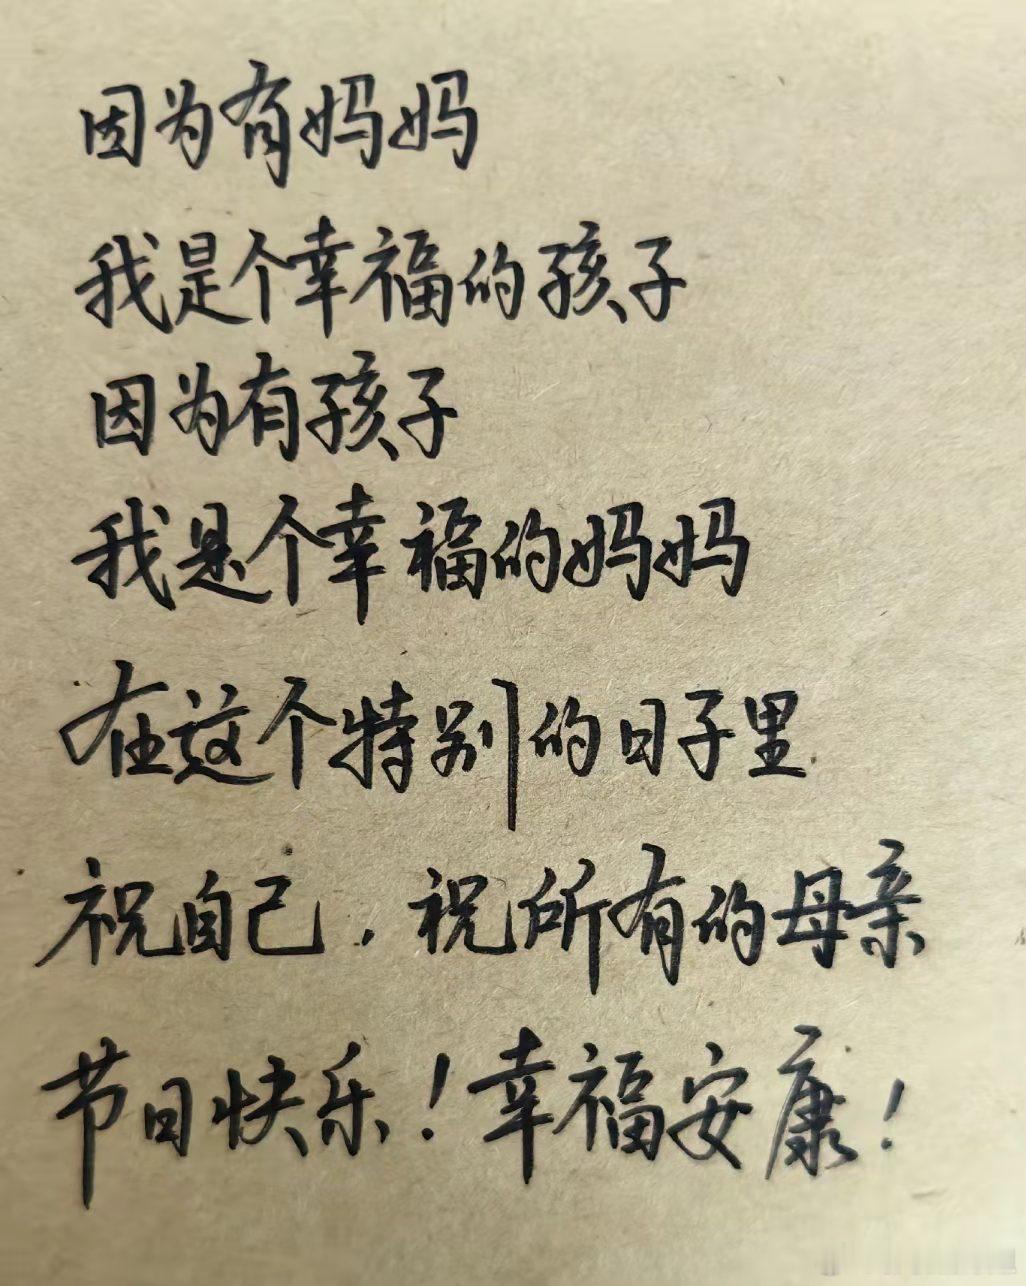 因为有妈妈
我是个幸福的孩子
因为有孩子
我是个幸福的妈妈
在这个特别的日子里
祝自己，祝所有的母亲
节日快乐！幸福安康！